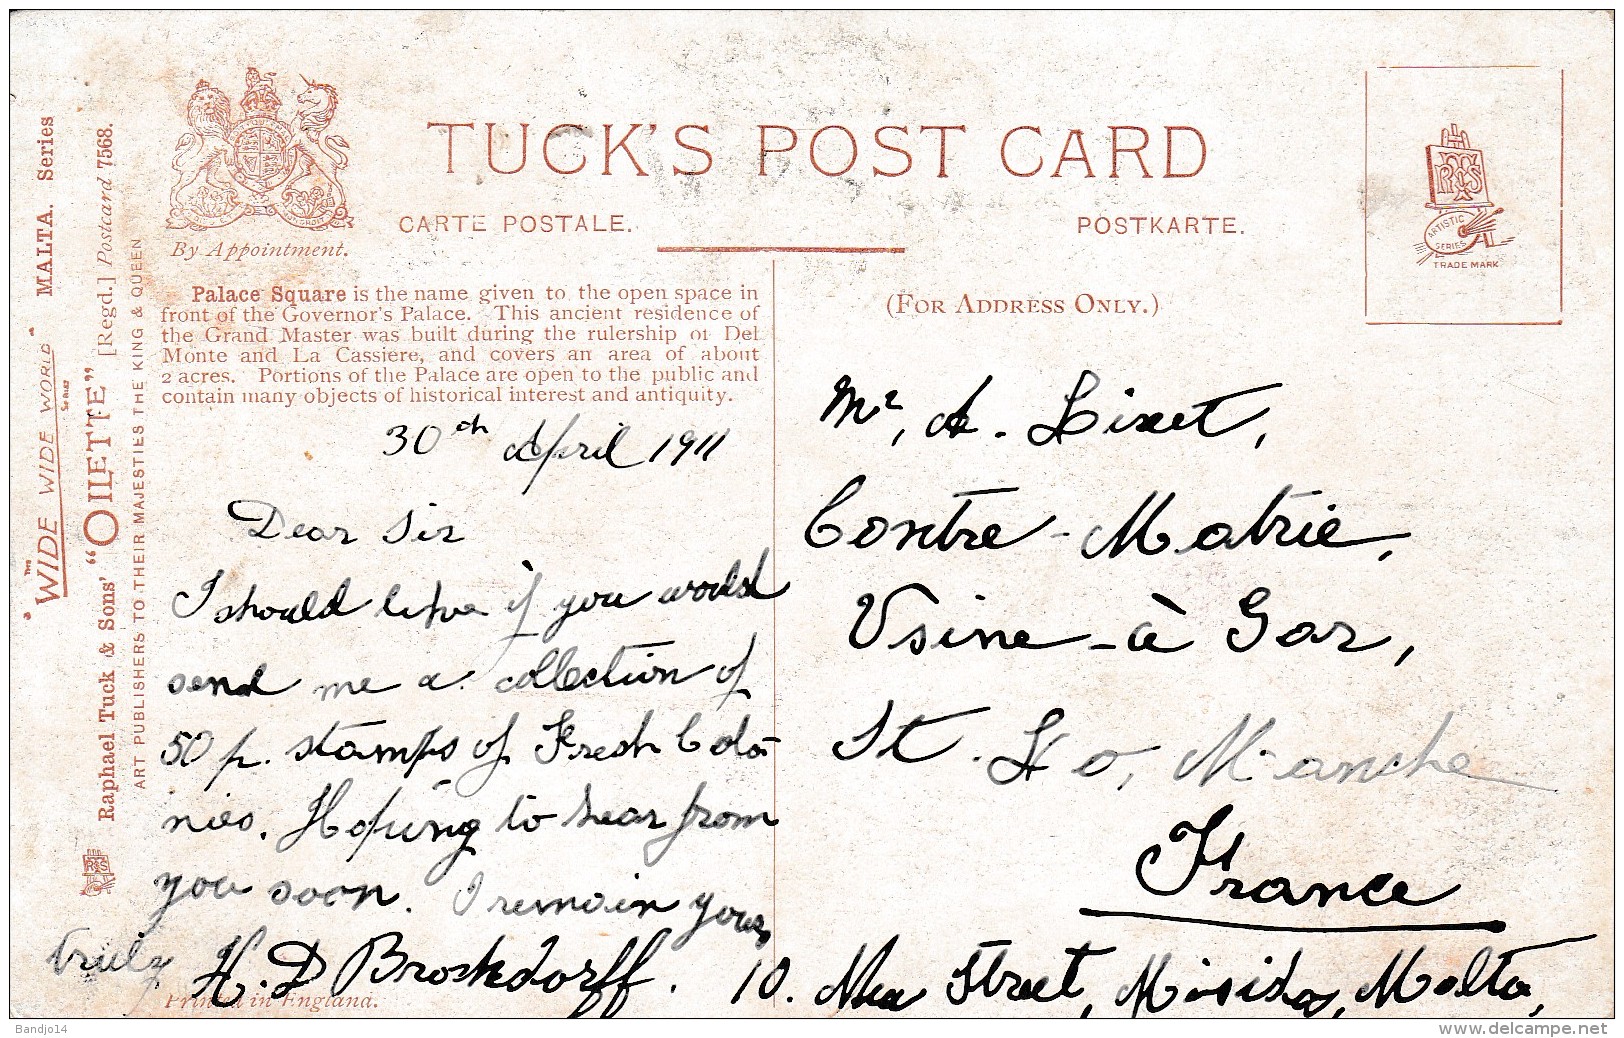 "THE "WIDE WIDE WORLD" SERIES MALTA. Series
Raphael Tuck & Sons' "OILETTE" [Regd.] Postcard 7568.
ART PUBLISHERS TO THEIR MAJESTIES THE KING & QUEEN
By Appointment.
TUCK'S POST CARD
CARTE POSTALE.
POSTKARTE.
(FOR ADDRESS ONLY.)
ARTISTIC
SERIES
TRADE MARK
Palace Square is the name given to the open space in
front of the Governor's Palace. This ancient residence of
the Grand Master was built during the rulership of Del
Monte and La Cassiere, and covers an area of about
2 acres. Portions of the Palace are open to the public and
contain many objects of historical interest and antiquity.
30th April 1911
Dear Sir
I should like if you would
send me a collection of
50 p. stamps of Fresh Colo-
nies. Hoping to hear from
you soon. I remain yours
truly H. D Brockdorff. 10. Street, Misida, Malta,
Mr, A. Lixet,
Contre-Matrie,
Usine-à Gar,
St. Lo, Manche
France
Printed in England.
Bandjo14
www.delcampe.net